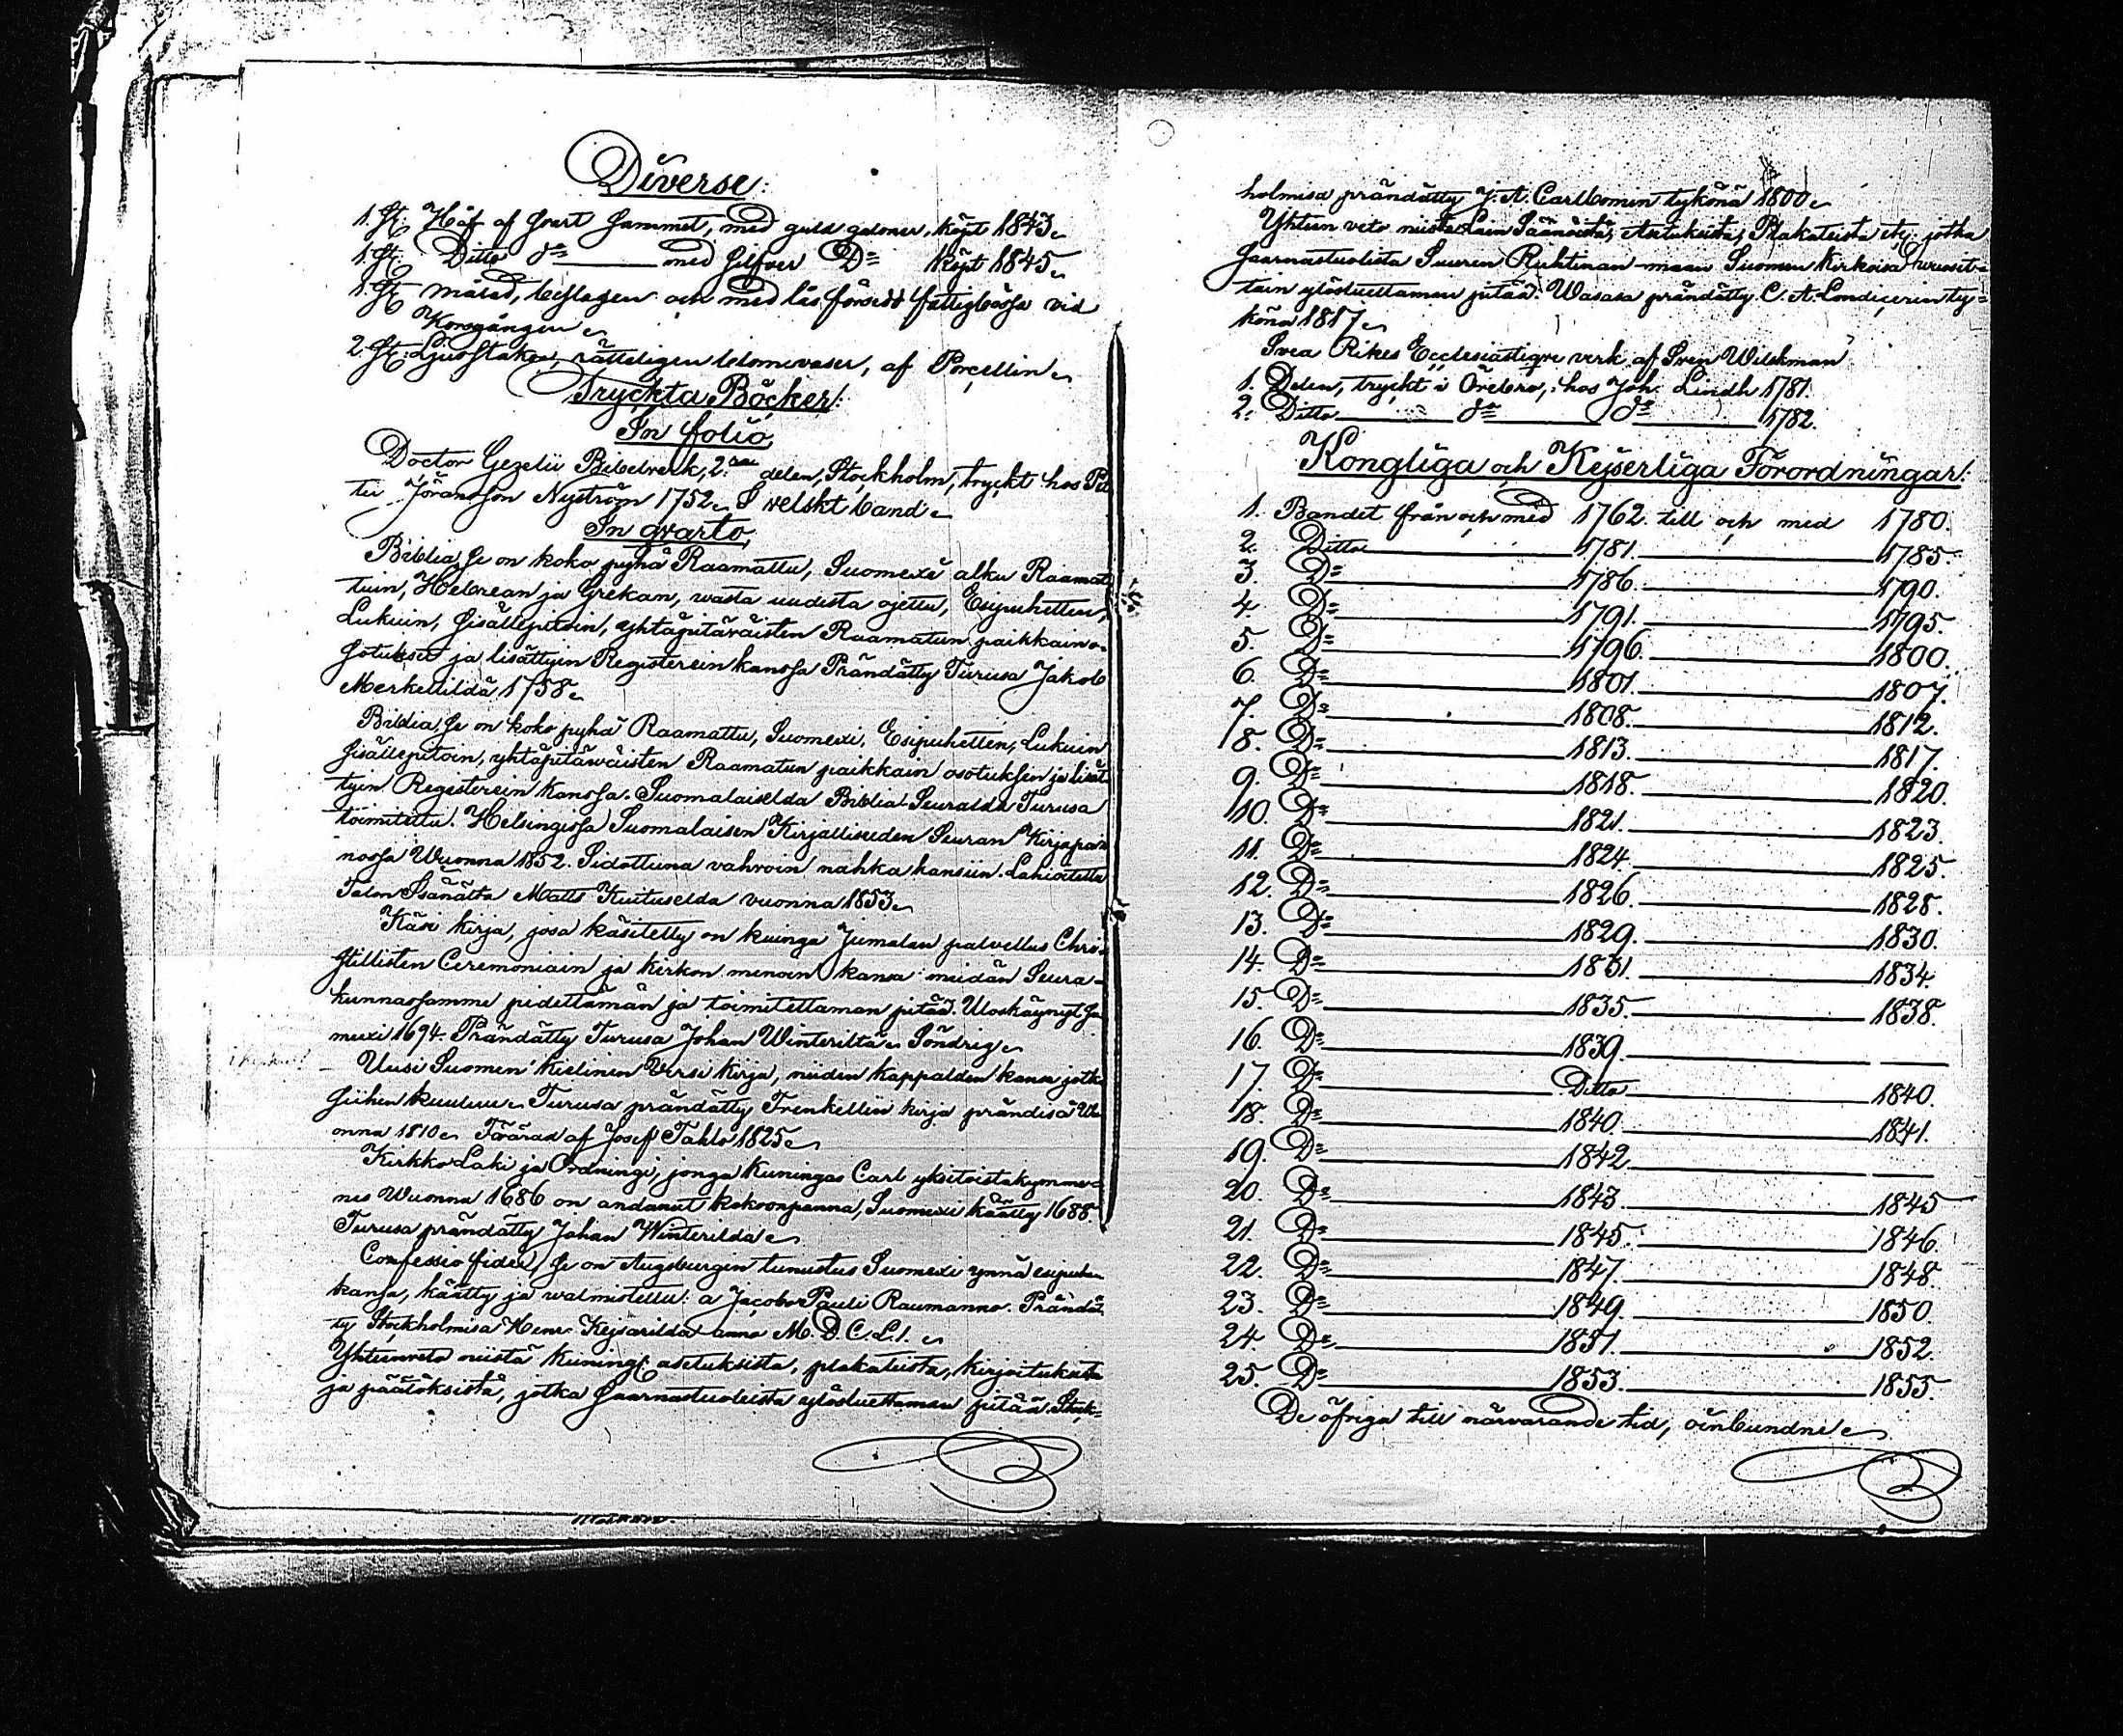 Diverse:
1. St. Håf af svart sammet, med guld galoner, köpt 1843.
1. St. Ditto do med silfver Do köpt 1845.
1. St. målad, beslagen och med lås försedd fattigbössa vid
Korsgången
2. St. Ljusstakar, rätteligen blomvaser, af Porcellin
Tryckta Böcker:
In folio
Doctor Gezelii Bibelverk, 2:dra delen, Stockholm, tryckt hos Pet
ter Jöransson Nyström 1752. I velskt band.
In qvarto
Biblia, se on koko pyhä Raamattu, Suomexi alku Raamat
tuin, Hebrean ja Grekan, wasta uudesta ojettu, Esipuhetten,
Lukuin, sisällepitoin, yhtäpitäwäisten Raamatun paikkain o-
sotuksen ja lisättyin Registerein kanssa Prändätty Turusa Jakob
Merkellildä 1758.
Biblia, se on koko pyhä Raamattu, Suomexi, Esipuhetten, Lukuin
sisällepitoin, yhtäpitäwäisten Raamatun paikkain osotuksen ja lisät
tyin Registerein kanssa. Suomalaiselda Biblia Seuralda Turusa
toimitettu. Helsingissä Suomalaisen Kirjallisuden Seuran Kirjapai
nossa Wuonna 1852. Sidottuna vahvoin nahka kansiin. Lahjoitettu
Talon Isänätta Matts Kuituselda vuonna 1853.
Käsi kirja, josa käsitetty on kuinga Jumalan palvellus Chris
tillisten Ceremoniain ja kirkon menoin kansa meidän Seura-
kunnassamme pidettämän ja toimitettaman pitää. Uloskäynyt Suo
mexi 1694. Prändätty Turusa Johan Winteriltä. Söndrig.
Uusi Suomen kielinen Virsi kirja, niiden kappalden kansa jotka
siihen kuuluu. Turusa prändätty Frenkellin kirja prändisä Wu
onna 1810. Förärad af Josef Tahlo 1825.
Kirkko Laki ja Ordningi, jonga Kuningas Carl yksitoistakymme-
nes Wuonna 1686 on andanut kokoonpanna, Suomexi käätty 1688.
Turusa prändätty Johan Winterilda
Confessio fidei, se on Augsburgin tunustus Suomexi ynnä esipuhen
kansa, käätty ja walmistettu: a Jacobo Pauli Raumanno. Prändät
ty Stockholmisa Henr. Kejsarilda anno M.D.C.L.I.
Yhteenveto niistä Kuningl. asetuksista, plakateista, kirjoituksista
ja päätöksistä, jotka Saarnastuoleista ylösluettaman pitää. Stock-
holmisa prändätty J. A. Carlbomin tykönä 1800
Yhteen veto niistä Lain Säännöistä, Asetuksista, Plakateista etc: jotka
Saarnastuolista Suuren Ruhtinan-maan Suomen Kirkoisa wuosit-
tain ylösluettaman pitää. Wasasa prändätty C. A. Londicerin ty-
könä 1817
Svea Rikes Ecclesiastique verk af Sven Wilskman
1. Delen, tryckt i Örebro, hos Joh. Lindh 1781.
2. Ditto do do 1782.
Kongliga och Kejserliga Förordningar:
1. Bandet från och med 1762. till och med 1780.
2. Ditto 1781. 1785.
3. Do 1786. 1790.
4. Do 1791. 1795.
5. Do 1796. 1800.
6. Do 1801. 1807.
7. Do 1808. 1812.
8. Do 1813. 1817.
9. Do 1818. 1820.
10. Do 1821. 1823.
11. Do 1824. 1825.
12. Do 1826. 1828.
13. Do 1829. 1830.
14. Do 1831. 1834.
15. Do 1835. 1838.
16. Do 1839.
17. Do Ditto 1840.
18. Do 1840. 1841.
19. Do 1842.
20. Do 1843. 1845
21. Do 1845. 1846.
22. Do 1847. 1848.
23. Do 1849. 1850.
24. Do 1851. 1852.
25. Do 1853. 1855.
De öfriga till närvarande tid, oinbundne